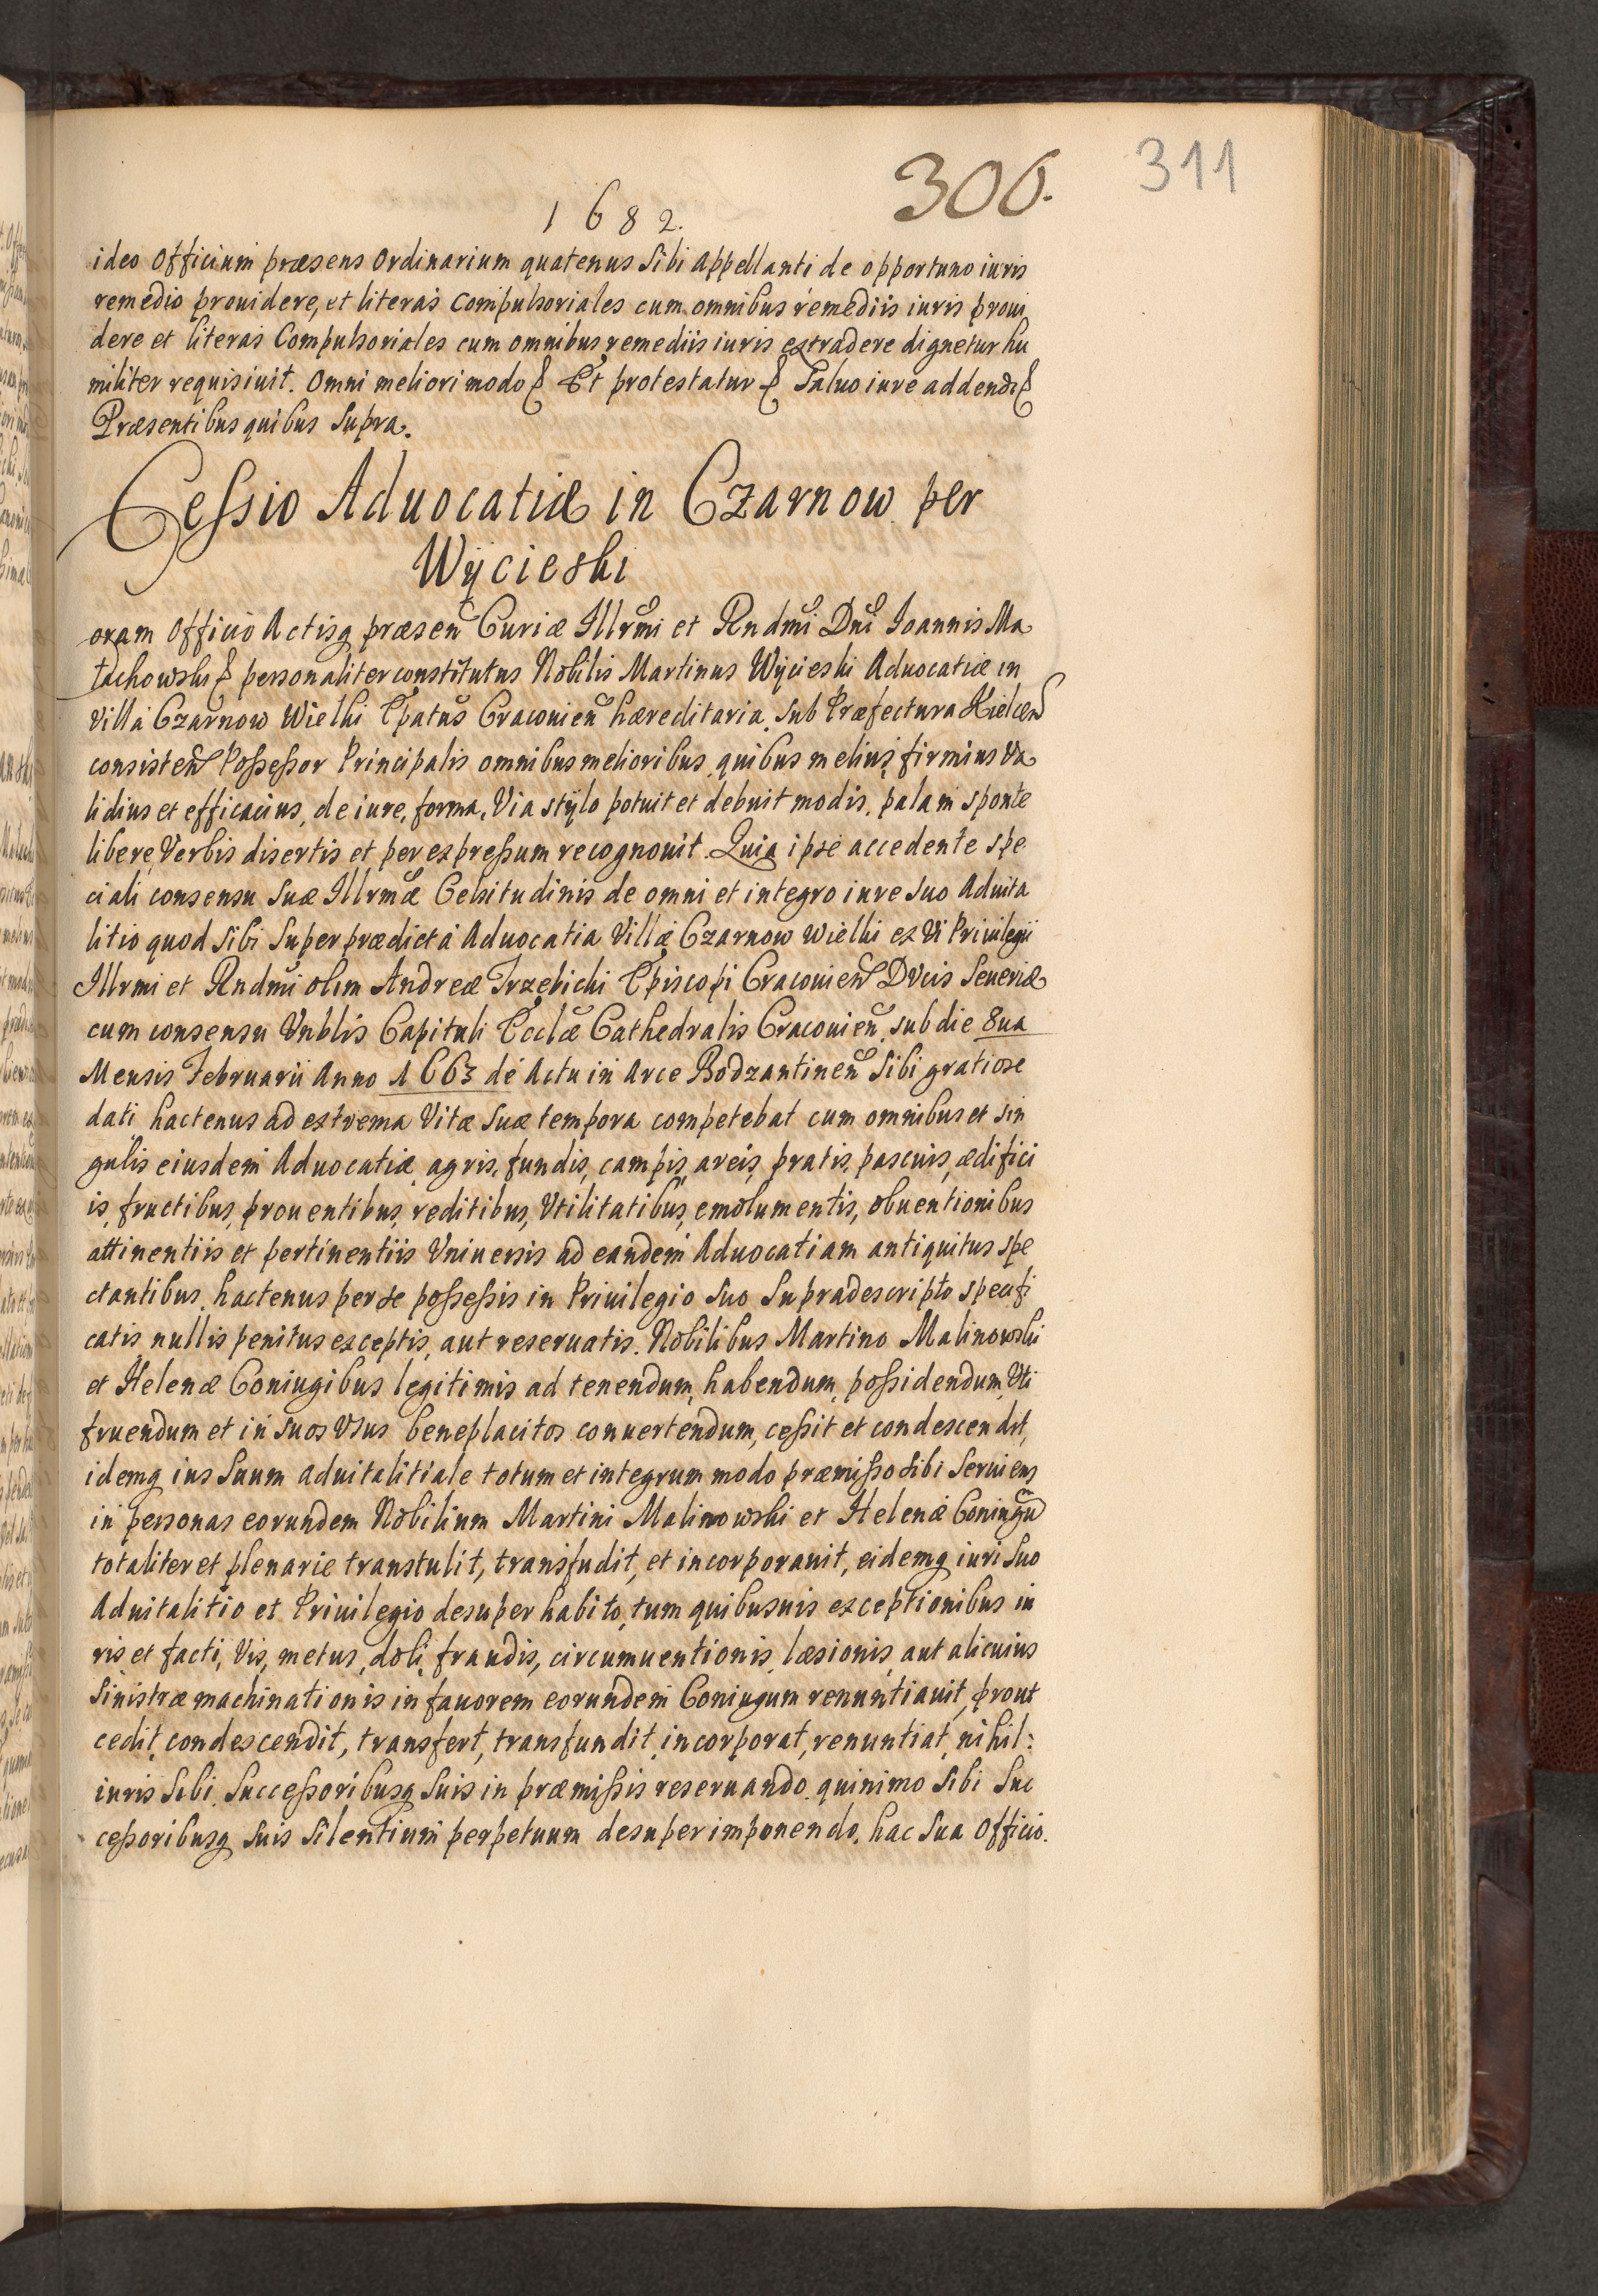 306.
311
1682.
ideo Officium præsens Ordinarium quatenus Sibi Appellanti de opportuno iuris
remedio prouidere, et literas Compulsoriales cum omnibus remediis iuris proui
dere et literas Compulsoriales cum omnibus remediis iuris extradere dignetur hu
militer requisiuit. Omni meliori modo & Et protestatur & Saluo iure addendi &
Præsentibus quibus Supra.
Cessio Aduocatiæ in Czarnow per
Wÿcieski
oram Officio Actisq præsen Curiæ Illrmi et Rndmi Dni Ioannis Ma
łachowski & personaliter constitutus Nobilis Martinus Wÿcieski Aduocatiæ in
Villa Czarnow Wielki Epatus Cracouien hæreditaria Sub Præfectura Kielcen
consisten Possessor Principalis omnibus melioribus, quibus melius, firmius Va
lidius et efficacius, de iure, forma, Via stÿlo potuit et debuit modis, palam sponte
libere Verbis disertis et per expressum recognouit. Quia ipse accedente spe
ciali consensu Suæ Illrmæ Celsitudinis de omni et integro iure suo Aduita
litio quod Sibi Super prædicta Aduocatia Villæ Czarnow Wielki ex Vi Priuilegii
Illrmi et Rndmi olim Andreæ Trzebicki Episcopi Cracouien Ducis Seueriæ
cum consensu Vnblis Capituli Ecclæ Cathedralis Cracouien. sub die 8ua
Mensis Februarii Anno 1663 de Actu in Arce Bodzantinen Sibi gratiose
dati hactenus ad extrema Vitæ Suæ tempora competebat cum omnibus et sin
gulis eiusdem Aduocatiæ agris, fundis, campis, areis, pratis, pascuis, ædifici
is, fructibus, prouentibus, reditibus, Vtilitatibus, emolumentis, obuentionibus
attinentiis et pertinentiis Vniuersis ad eandem Aduocatiam antiquitus spe
ctantibus, hactenus per se possessis in Priuilegio Suo Supradescripto specifi
catis nullis penitus exceptis, aut reseruatis. Nobilibus Martino Malinowski
et Helenæ Coniugibus legitimis ad tenendum, habendum, possidendum, Vti
fruendum et in suos Vsus beneplacitos conuertendum, cessit et condescendit,
idemq ius Suum aduitalitiale totum et integrum modo præmisso Sibi Seruiens
in personas eorundem Nobilium Martini Malinowski et Helenæ Coniugu
totaliter et plenarie transtulit, transfudit, et incorporauit, eidemq iuri Suo
Aduitalitio et Priuilegio desuper habito, tum quibusuis exceptionibus iu
ris et facti, Vis, metus, doli, fraudis, circumuentionis, læsionis, aut alicuius
Sinistræ machinationis in fauorem eorundem Coniugum renuntiauit, prout
cedit, condescendit, transfert, transfundit, incorporat, renuntiat, nihil:
iuris Sibi, Successoribusq Suis in præmissis reseruando, quinimo Sibi Suc
cessoribusq Suis Silentium perpetuum desuper imponendo. hac Sua Officio.